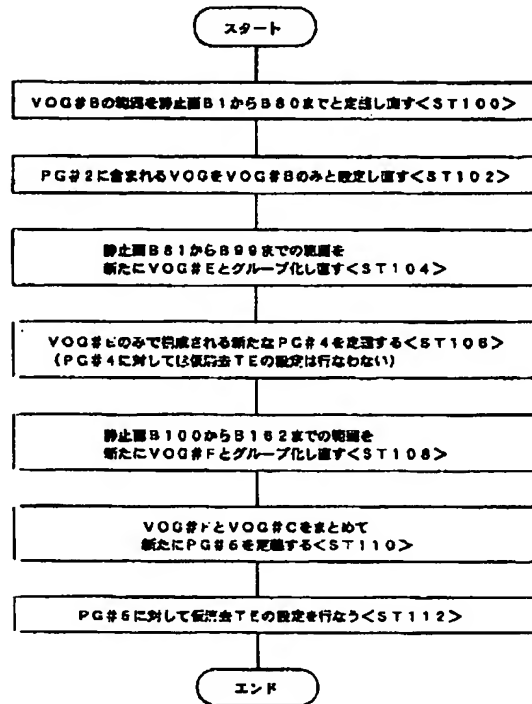 スタート
VOG#Bの範囲を静止画B1からB80までと定義し直す<ST100>
PG#2に含まれるVOGをVOG#Bのみと設定し直す<ST102>
静止画B81からB99までの範囲を
新たにVOG#Eとグループ化し直す<ST104>
VOG#Eのみで構成される新たなPG#4を定義する<ST106>
(PG#4に対しては仮消去TEの設定は行なわない)
静止画B100からB162までの範囲を
新たにVOG#Fとグループ化し直す<ST108>
VOG#FとVOG#Cをまとめて
新たにPG#5を定義する<ST110>
PG#5に対して仮消去TEの設定を行なう<ST112>
エンド